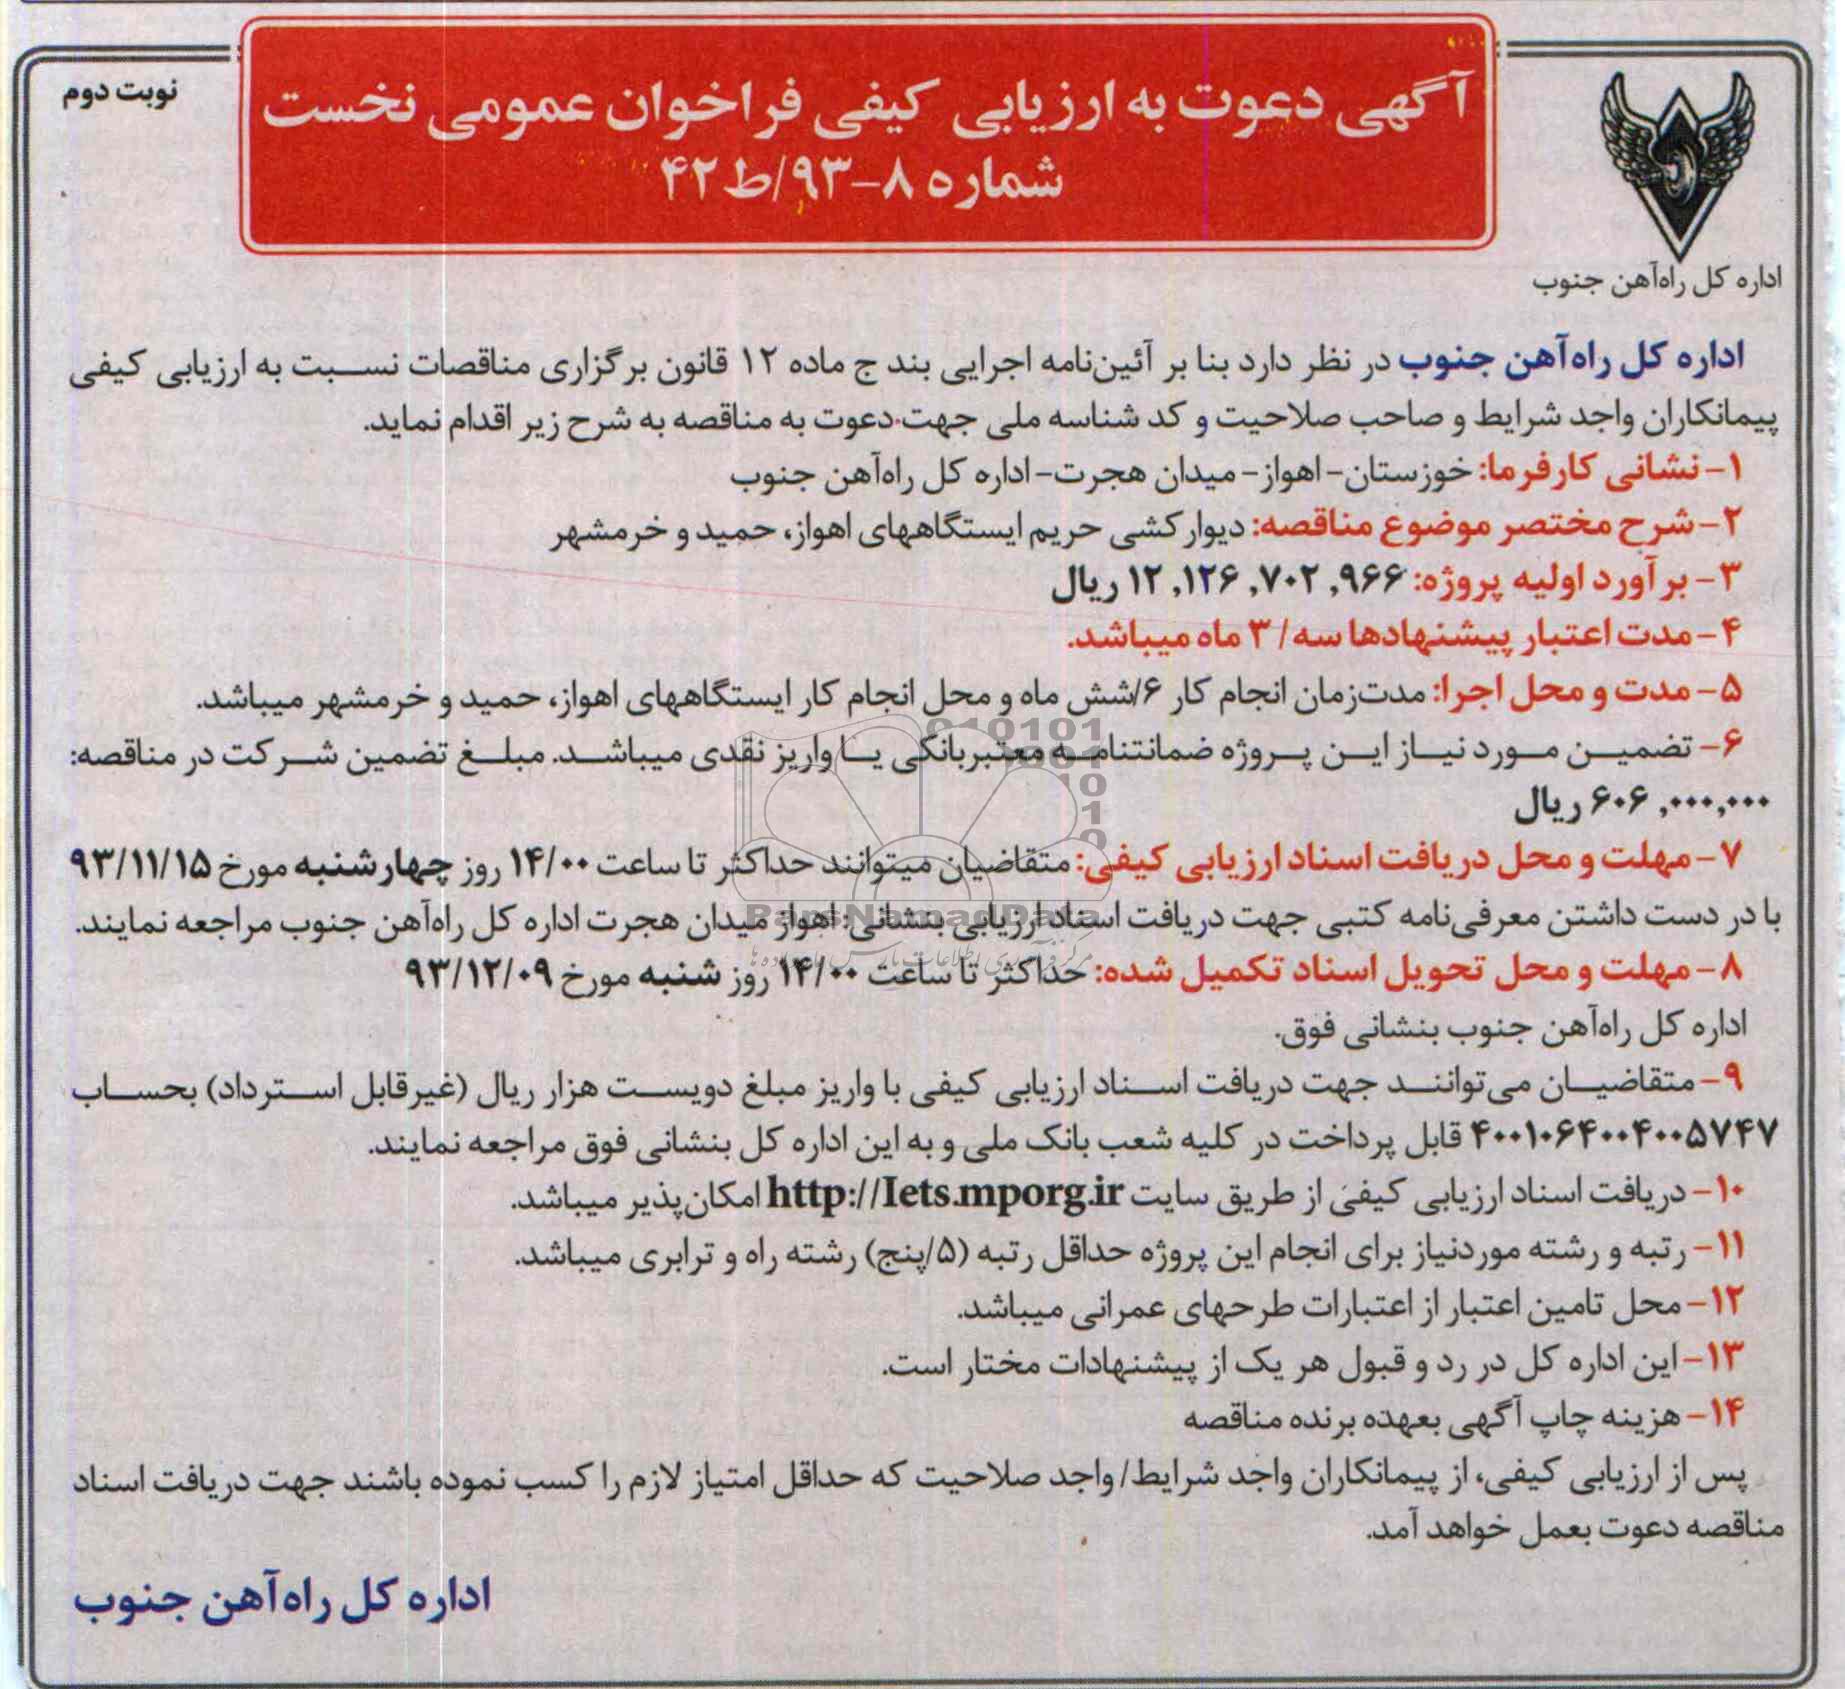 نوبت دوم
آگهی دعوت به ارزیابی کیفی فراخوان عمومی نخست
شماره ۸-۹۳/ط۴۲
اداره کل راه‌آهن جنوب
اداره کل راه‌آهن جنوب در نظر دارد بنا بر آئین‌نامه اجرایی بند ج ماده ۱۲ قانون برگزاری مناقصات نسبت به ارزیابی کیفی
پیمانکاران واجد شرایط و صاحب صلاحیت و کد شناسه ملی جهت دعوت به مناقصه به شرح زیر اقدام نماید.
۱- نشانی کارفرما: خوزستان- اهواز- میدان هجرت- اداره کل راه‌آهن جنوب
۲- شرح مختصر موضوع مناقصه: دیوارکشی حریم ایستگاههای اهواز، حمید و خرمشهر
۳- برآورد اولیه پروژه: ۱۲,۱۲۶,۷۰۲,۹۶۶ ریال
۴- مدت اعتبار پیشنهادها سه/ ۳ ماه میباشد.
۵- مدت و محل اجرا: مدت‌زمان انجام کار ۶/شش ماه و محل انجام کار ایستگاههای اهواز، حمید و خرمشهر میباشد.
۶- تضمین مورد نیاز این پروژه ضمانتنامه معتبربانکی یا واریز نقدی میباشد. مبلغ تضمین شرکت در مناقصه:
۶۰۶,۰۰۰,۰۰۰ ریال
۷- مهلت و محل دریافت اسناد ارزیابی کیفی: متقاضیان میتوانند حداکثر تا ساعت ۱۴/۰۰ روز چهارشنبه مورخ ۹۳/۱۱/۱۵
با در دست داشتن معرفی‌نامه کتبی جهت دریافت اسناد ارزیابی بنشانی: اهواز میدان هجرت اداره کل راه‌آهن جنوب مراجعه نمایند.
۸- مهلت و محل تحویل اسناد تکمیل شده: حداکثر تا ساعت ۱۴/۰۰ روز شنبه مورخ ۹۳/۱۲/۰۹
اداره کل راه‌آهن جنوب بنشانی فوق.
۹- متقاضیان می‌توانند جهت دریافت اسناد ارزیابی کیفی با واریز مبلغ دویست هزار ریال (غیرقابل استرداد) بحساب
۴۰۰۱۰۶۴۰۰۴۰۰۵۷۴۷ قابل پرداخت در کلیه شعب بانک ملی و به این اداره کل بنشانی فوق مراجعه نمایند.
۱۰- دریافت اسناد ارزیابی کیفی از طریق سایت http://Iets.mporg.ir امکان‌پذیر میباشد.
۱۱- رتبه و رشته موردنیاز برای انجام این پروژه حداقل رتبه (۵/پنج) رشته راه و ترابری میباشد.
۱۲- محل تامین اعتبار از اعتبارات طرحهای عمرانی میباشد.
۱۳- این اداره کل در رد و قبول هر یک از پیشنهادات مختار است.
۱۴- هزینه چاپ آگهی بعهده برنده مناقصه
پس از ارزیابی کیفی، از پیمانکاران واجد شرایط/ واجد صلاحیت که حداقل امتیاز لازم را کسب نموده باشند جهت دریافت اسناد
مناقصه دعوت بعمل خواهد آمد.
اداره کل راه‌آهن جنوب
ParsNamadData